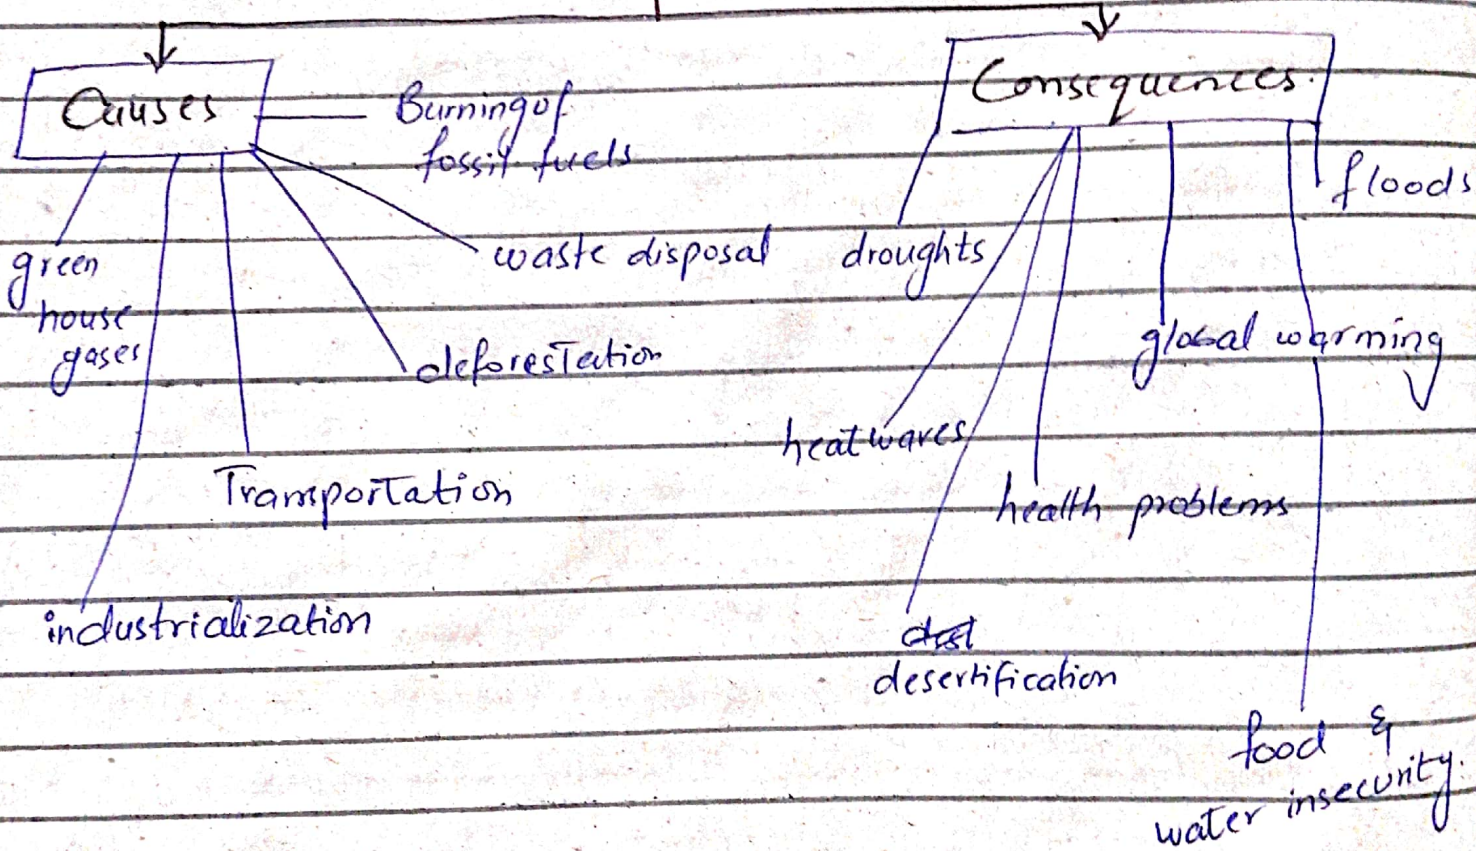 Causes
Burning of
fossil fuels
green
house
gases
waste disposal
deforestation
Transportation
industrialization
Consequences.
floods
droughts
global warming
heatwaves
health problems
desertification
food &
water insecurity.